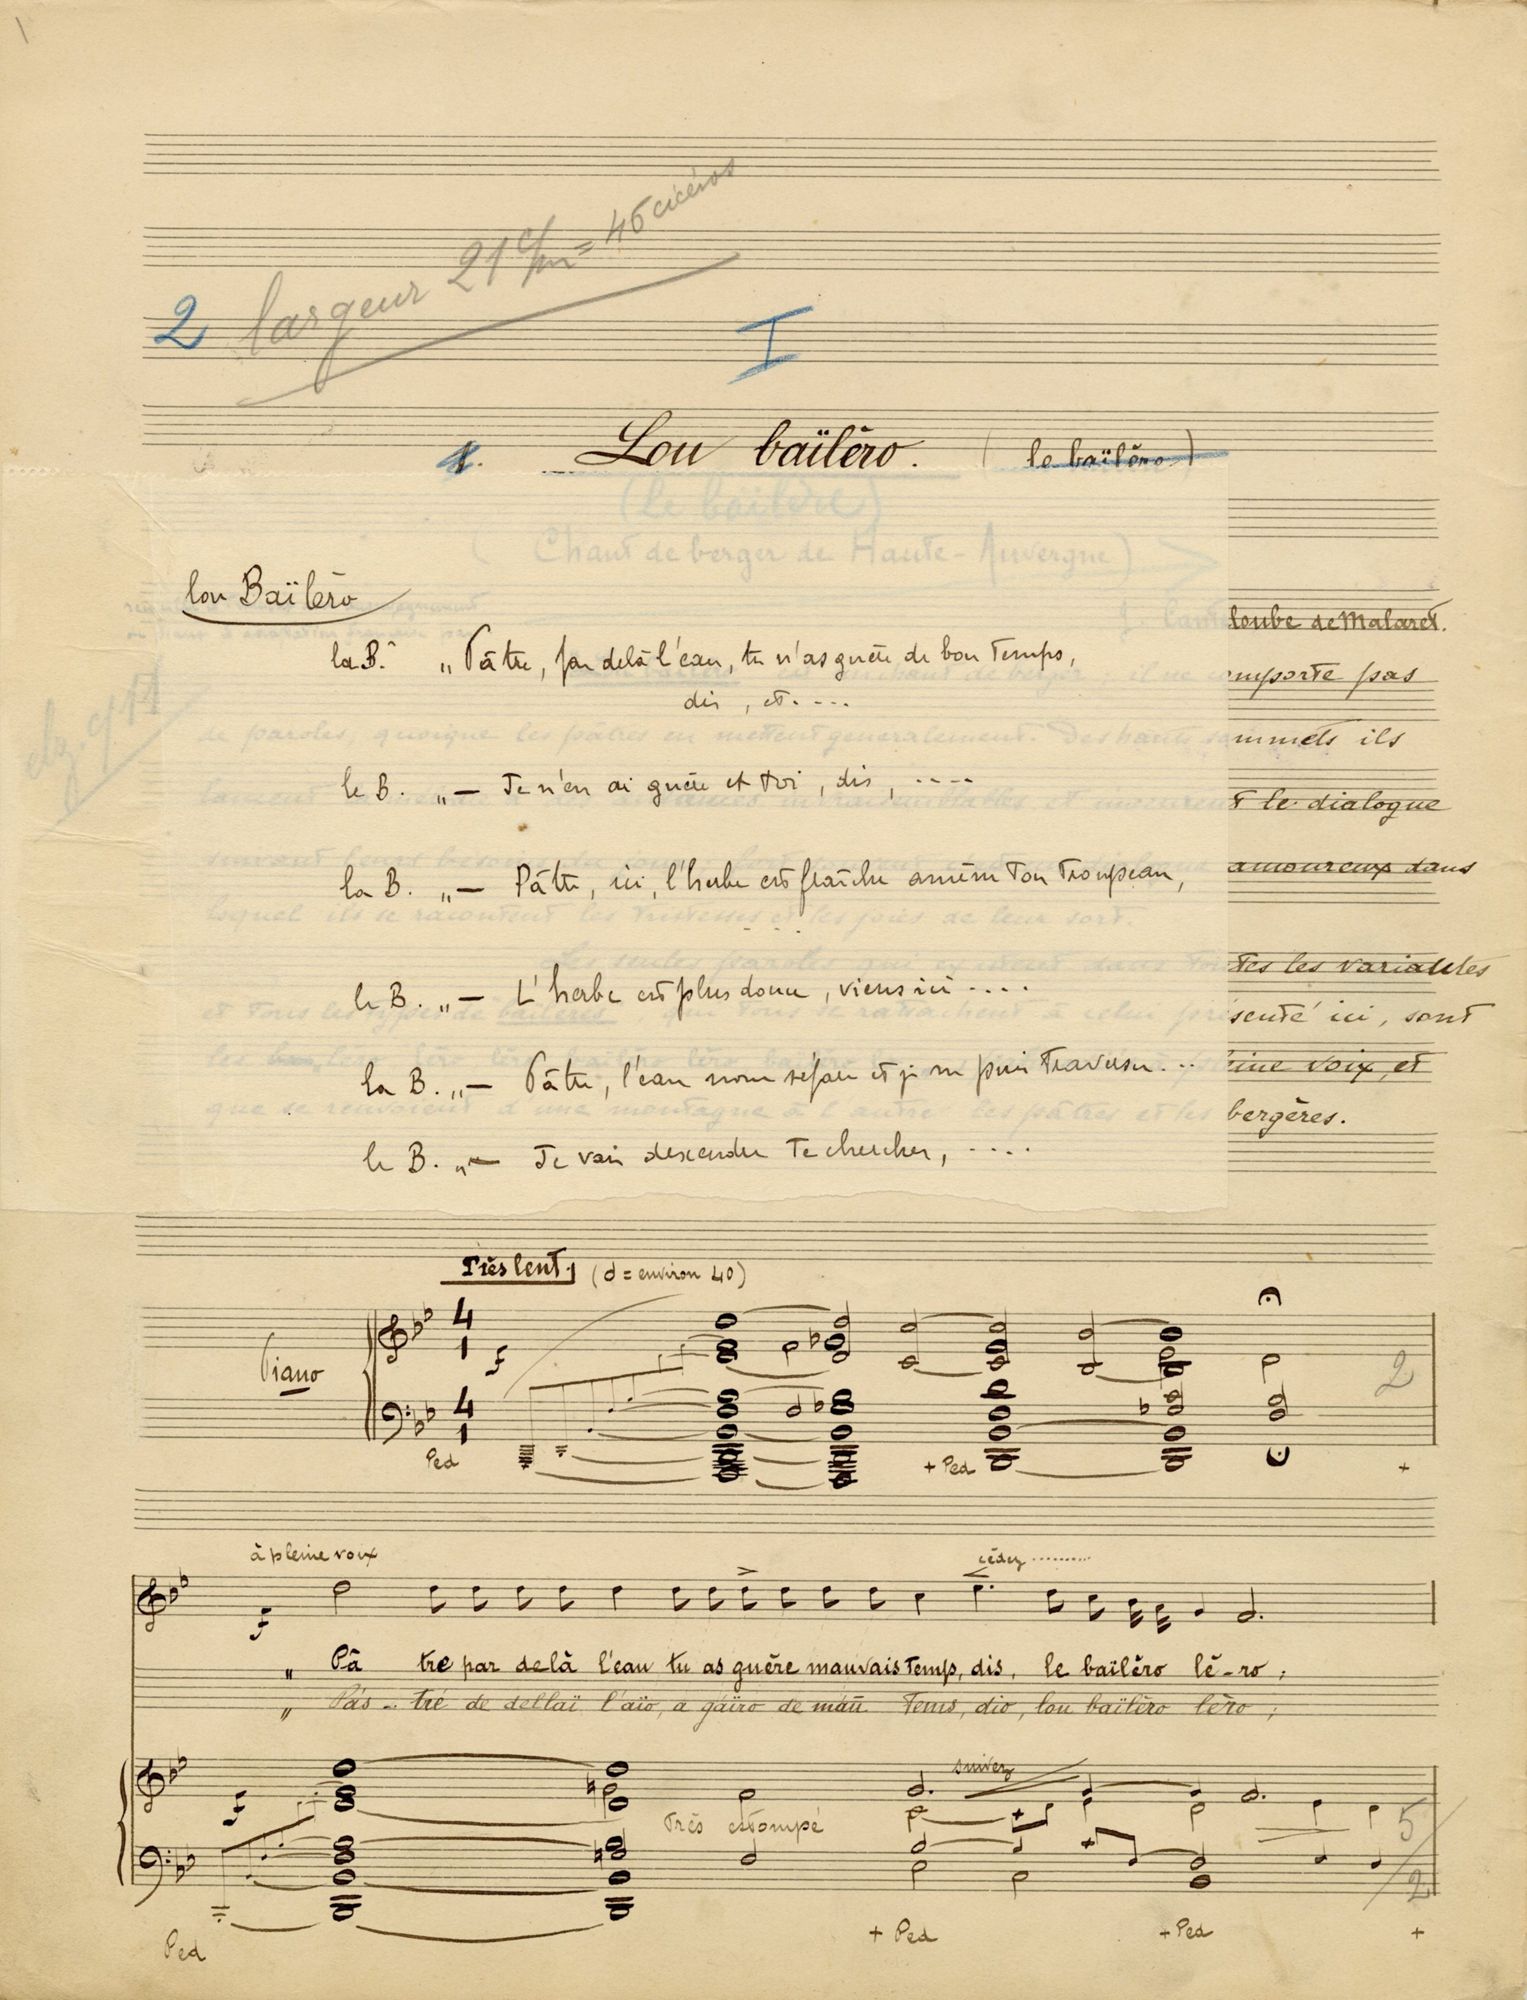 2 largeur 21 c/m = 46 cicéros
I
1. Lou baïlèro. (le baïlèro)
(le baïlère)
(Chant de berger de Haute-Auvergne)
lou Baïlèro
J. Canteloube de Malaret.
la B. „ Pâtre, par delà l'eau, tu n'as guère de bon temps,
est un chant de berger ; il ne comporte pas
dis, et....
de paroles, quoique les pâtres en mettent généralement. Des hauts sommets ils
le B. „— Je n'en ai guère et toi, dis, ....
et le dialogue
la B. „— Pâtre, ici, l'herbe est fraîche amène ton troupeau,
amoureux dans
lequel ils se racontent les tristesses et les joies de leur sort.
Les seules paroles qui existent dans toutes les variables
le B. „— L'herbe est plus douce, viens ici ....
et tous les types de baïlères, qui tous se rattachent à celui présenté ici, sont
la B. „— Pâtre, l'eau nous sépare et je ne puis traverser...
pleine voix, et
que se renvoient d'une montagne à l'autre les pâtres et les bergères.
le B. „— Je vais descendre te chercher, ....
Très lent. (d = environ 40)
Piano
4 1
4 1
2
Ped + Ped +
à pleine voix cédez..........
„ Pâ tre par delà l'eau tu as guère mauvais temps, dis, le baïlèro lè-ro ;
„ Pás-tré de dellaï l'aïo, a gaïro de maü tems, dio, lou baïlèro lèro ;
suivez
Très estompé
5/2
Ped + Ped + Ped +